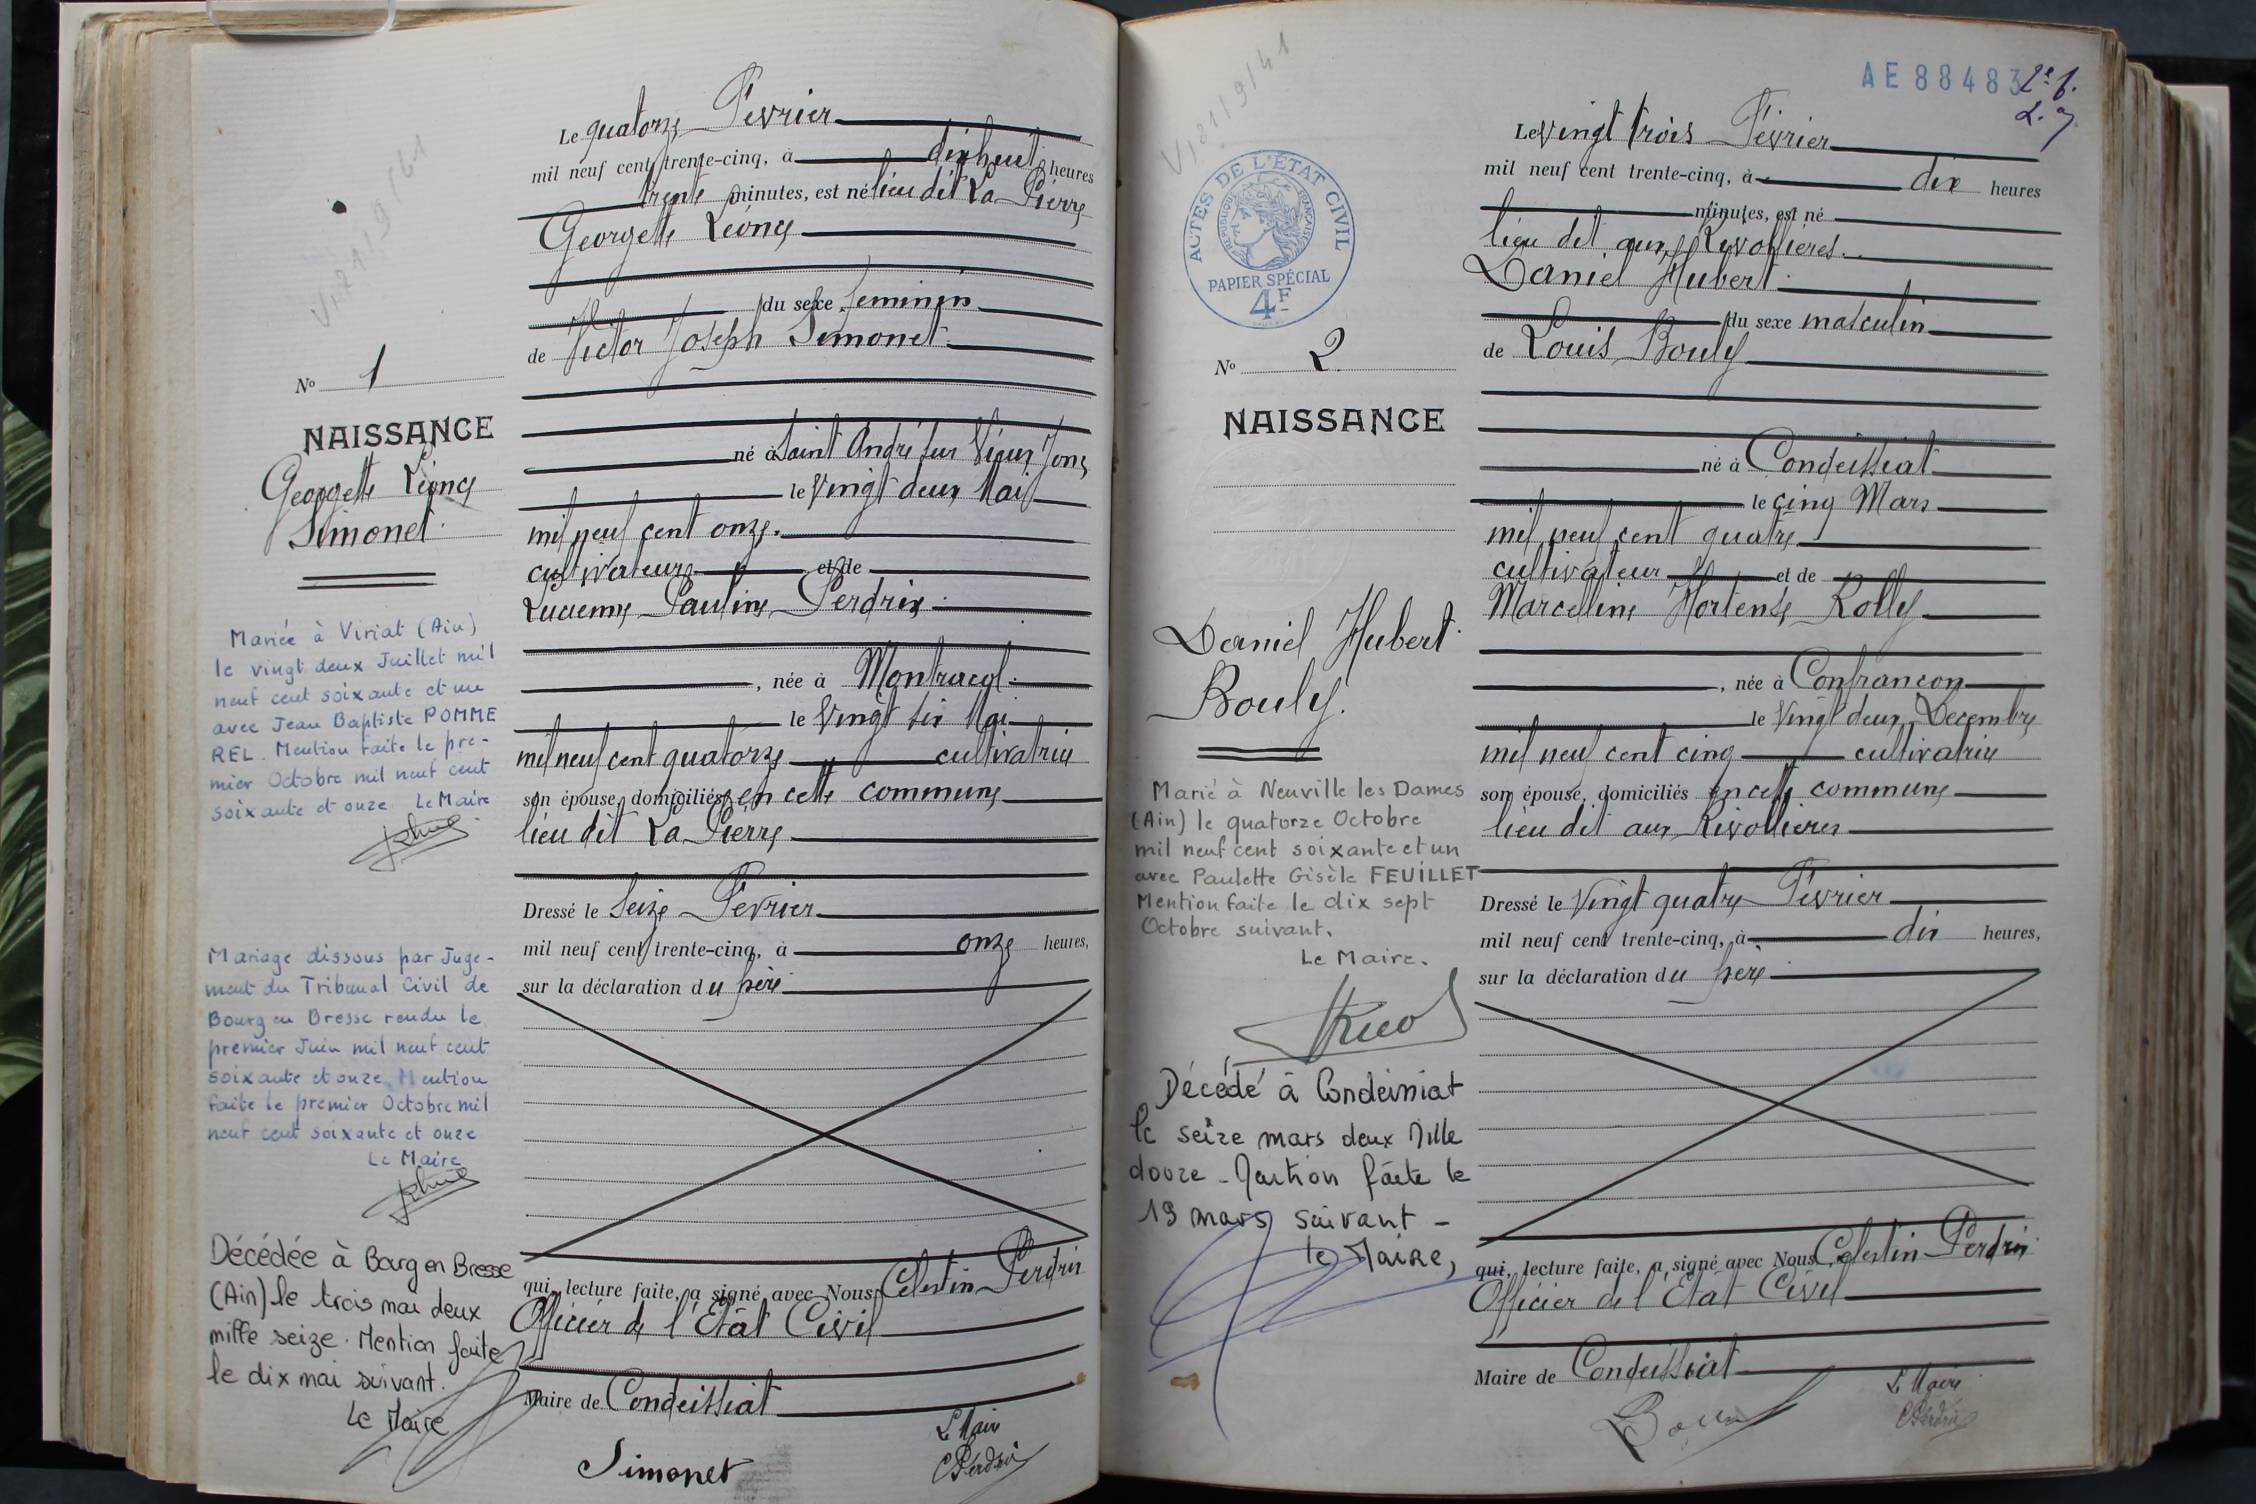 Le quatorze Février
mil neuf cent trente-cinq, à dix huit heures
trente minutes, est né lieu dit La Pierre
Georgette Léonce
du sexe féminin
de Victor Joseph Simonet
né à Saint André sur Vieux Jonc
le vingt deux Mai
mil neuf cent onze.
cultivateur et de
Lucienne Pauline Perdrix
, née à Montracol
le Vingt six Mai
mil neuf cent quatorze cultivatrice
son épouse, domiciliés en cette commune
lieu dit La Pierre
Dressé le Seize Février
mil neuf cent trente-cinq, à onze heures,
sur la déclaration du père
qui, lecture faite, a signé avec Nous, Célestin Perdrix
Officier de l'Etat Civil
Maire de Condeissiat
Simonet
Le Maire
C Perdrix
V, 21/9/61
No 1
NAISSANCE
Georgette Léonce
Simonet
Mariée à Viriat (Ain)
le vingt deux Juillet mil
neuf cent soixante et un
avec Jean Baptiste POMME
REL. Mention faite le pre-
mier Octobre mil neuf cent
soixante et onze Le Maire
Mariage dissous par Juge-
ment du Tribunal Civil de
Bourg en Bresse rendu le
premier Juin mil neuf cent
soixante et onze. Mention
faite le premier Octobre mil
neuf cent soixante et onze
Le Maire
Décédée à Bourg en Bresse
(Ain) le trois mai deux
mille seize. Mention faite
le dix mai suivant.
Le Maire
AE 88483
Le vingt trois Février
mil neuf cent trente-cinq, à dix heures
minutes, est né
lieu dit aux Rivollières
Daniel Hubert
du sexe masculin
de Louis Bouly
né à Condeissiat
le cinq Mars
mil neuf cent quatre
cultivateur et de
Marcelline Hortense Rolly
, née à Confrançon
le Vingt deux Décembre
mil neuf cent cinq cultivatrice
son épouse, domiciliés en cette commune
lieu dit aux Rivollières
Dressé le Vingt quatre Février
mil neuf cent trente-cinq, à dix heures,
sur la déclaration du père
qui, lecture faite, a signé avec Nous, Célestin Perdrix
Officier de l'Etat Civil
Maire de Condeissiat
Le Maire
C Perdrix
ACTES DE L'ÉTAT CIVIL
RÉPUBLIQUE FRANÇAISE
PAPIER SPÉCIAL
4F
No 2
NAISSANCE
Daniel Hubert
Bouly.
Marié à Neuville les Dames
(Ain) le quatorze Octobre
mil neuf cent soixante et un
avec Paulette Gisèle FEUILLET
Mention faite le dix sept
Octobre suivant.
Le Maire.
Décédé à Condeissiat
le seize mars deux mille
douze - Mention faite le
19 mars suivant -
le Maire,